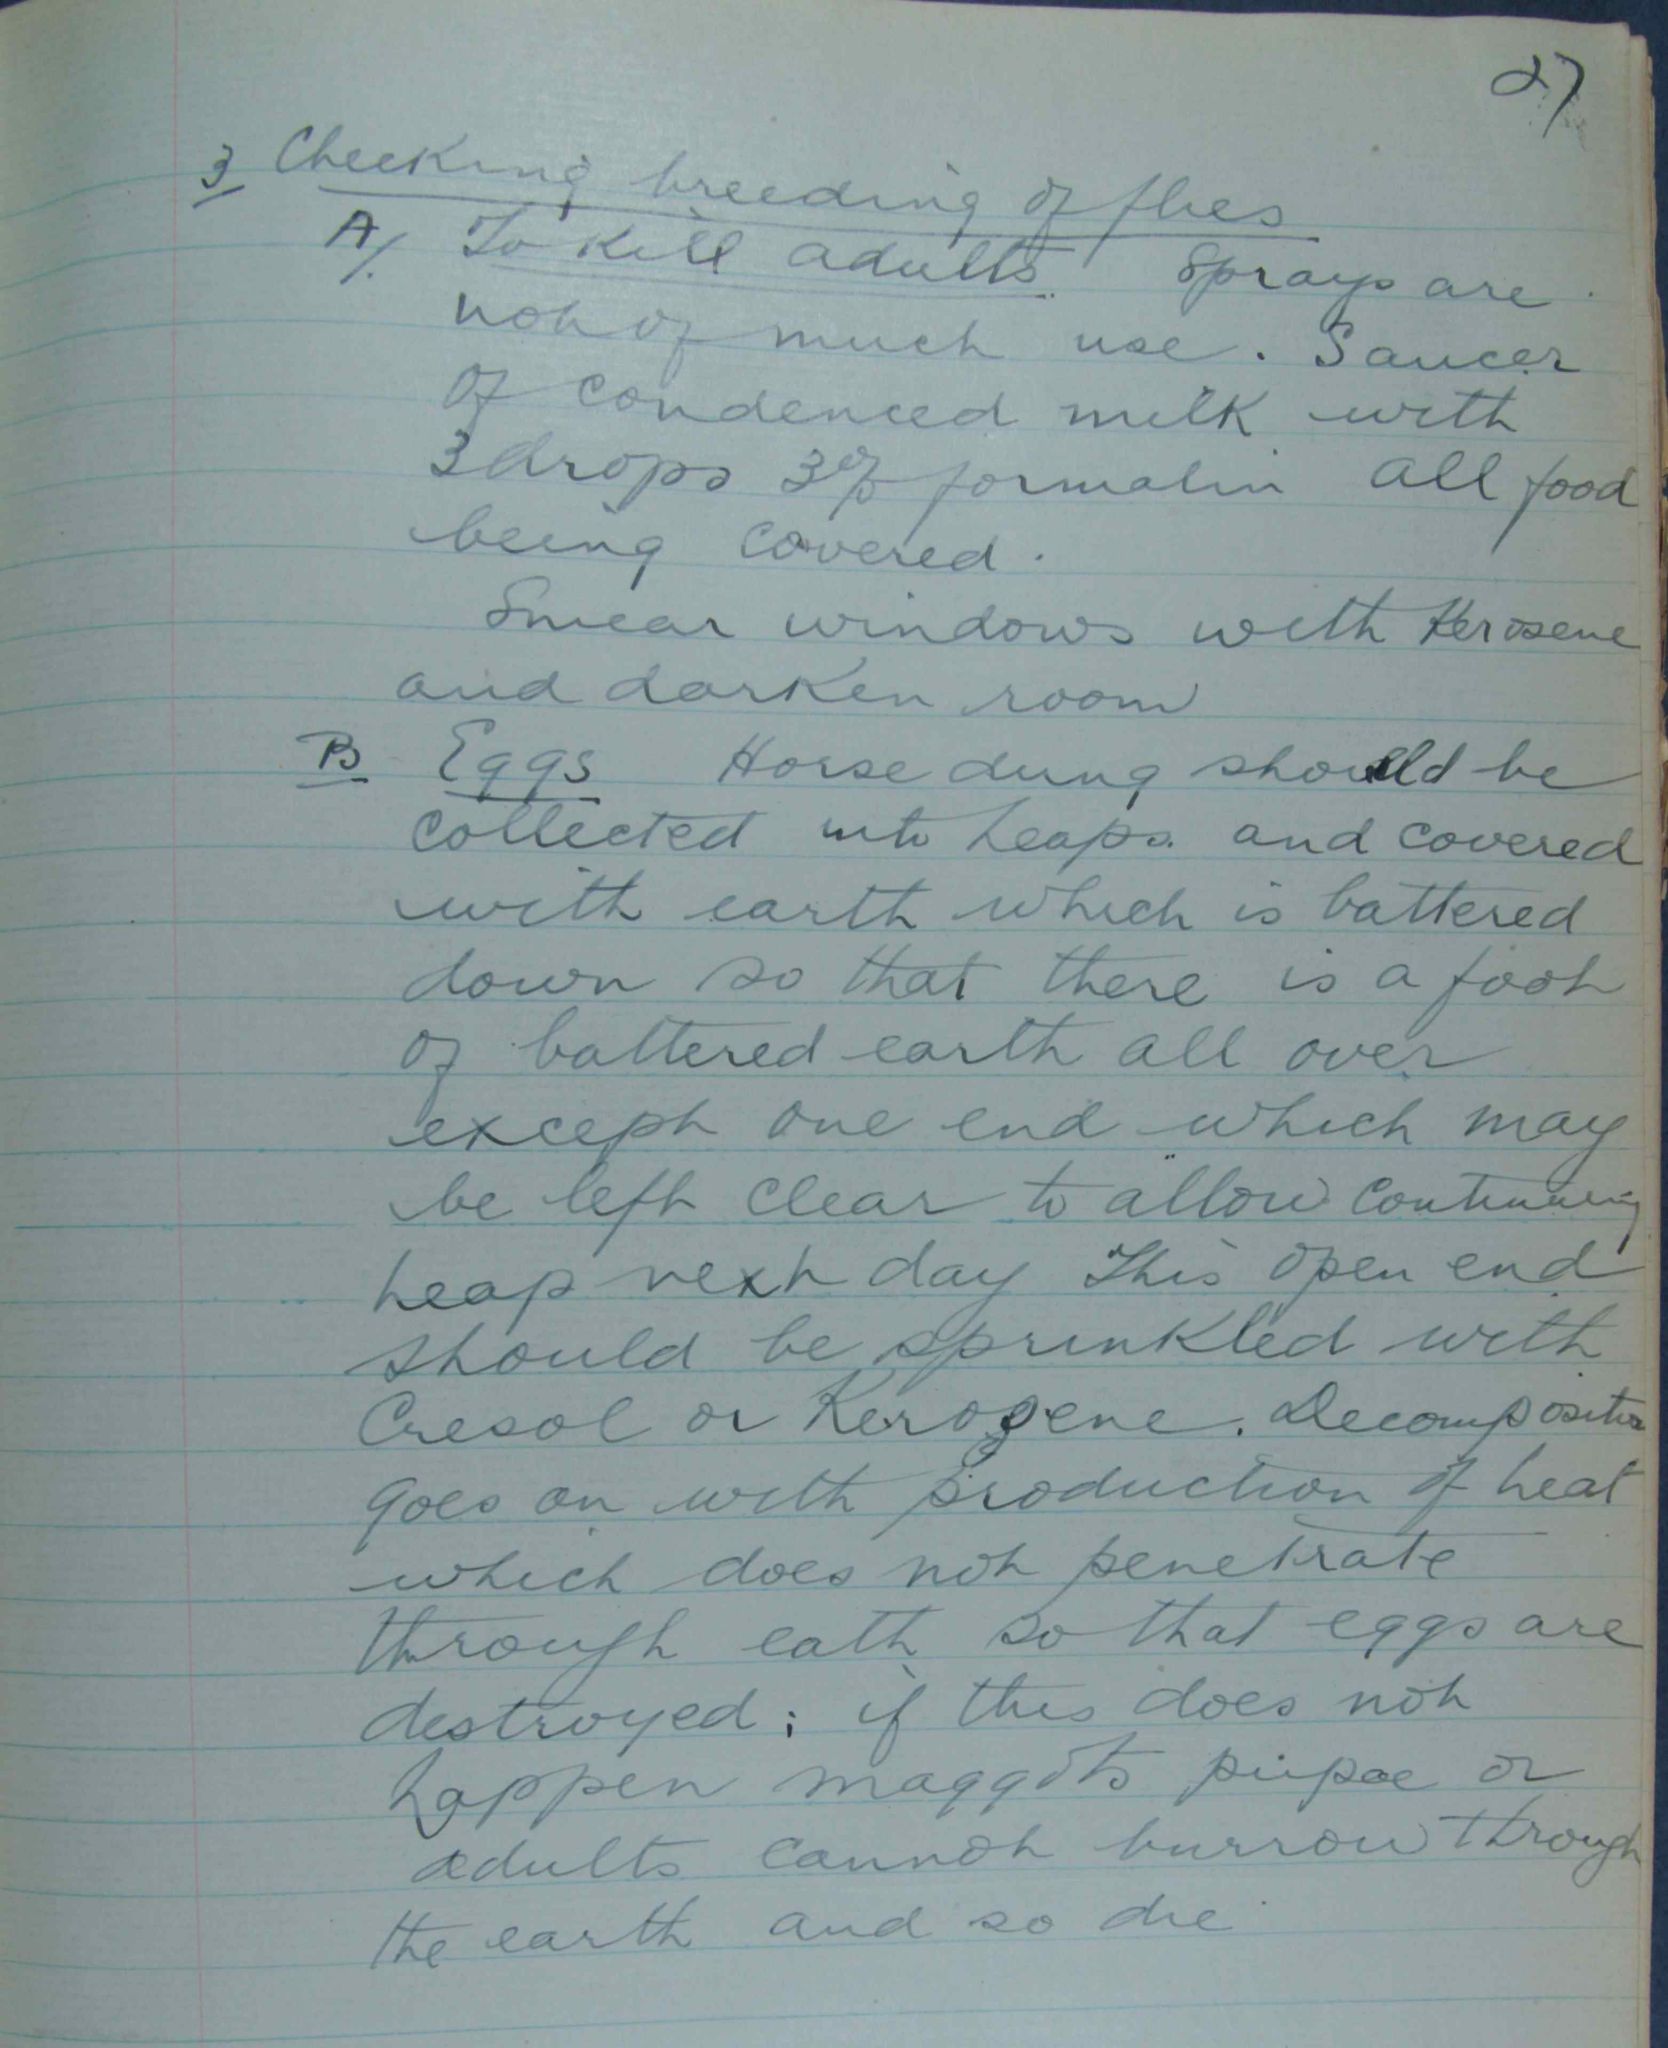 27
3 Checking breeding of flies
A/. To kill adults. Sprays are
not of much use. Saucer
of condenced milk with
3 drops 3% formalin all food
being covered.
Smear windows with Kerosene
and darken room
B Eggs Horse dung should be
collected into heaps and covered
with earth which is battered
down so that there is a foot
of battered earth all over
except one end which may
be left clear to allow continuing
heap next day This open end
should be sprinkled with
Cresol or Kerosene. Decomposition
goes on with production of heat
which does not penetrate
through eath so that eggs are
destroyed; if this does not
happen maggots pupae or
adults cannot burrow through
the earth and so die